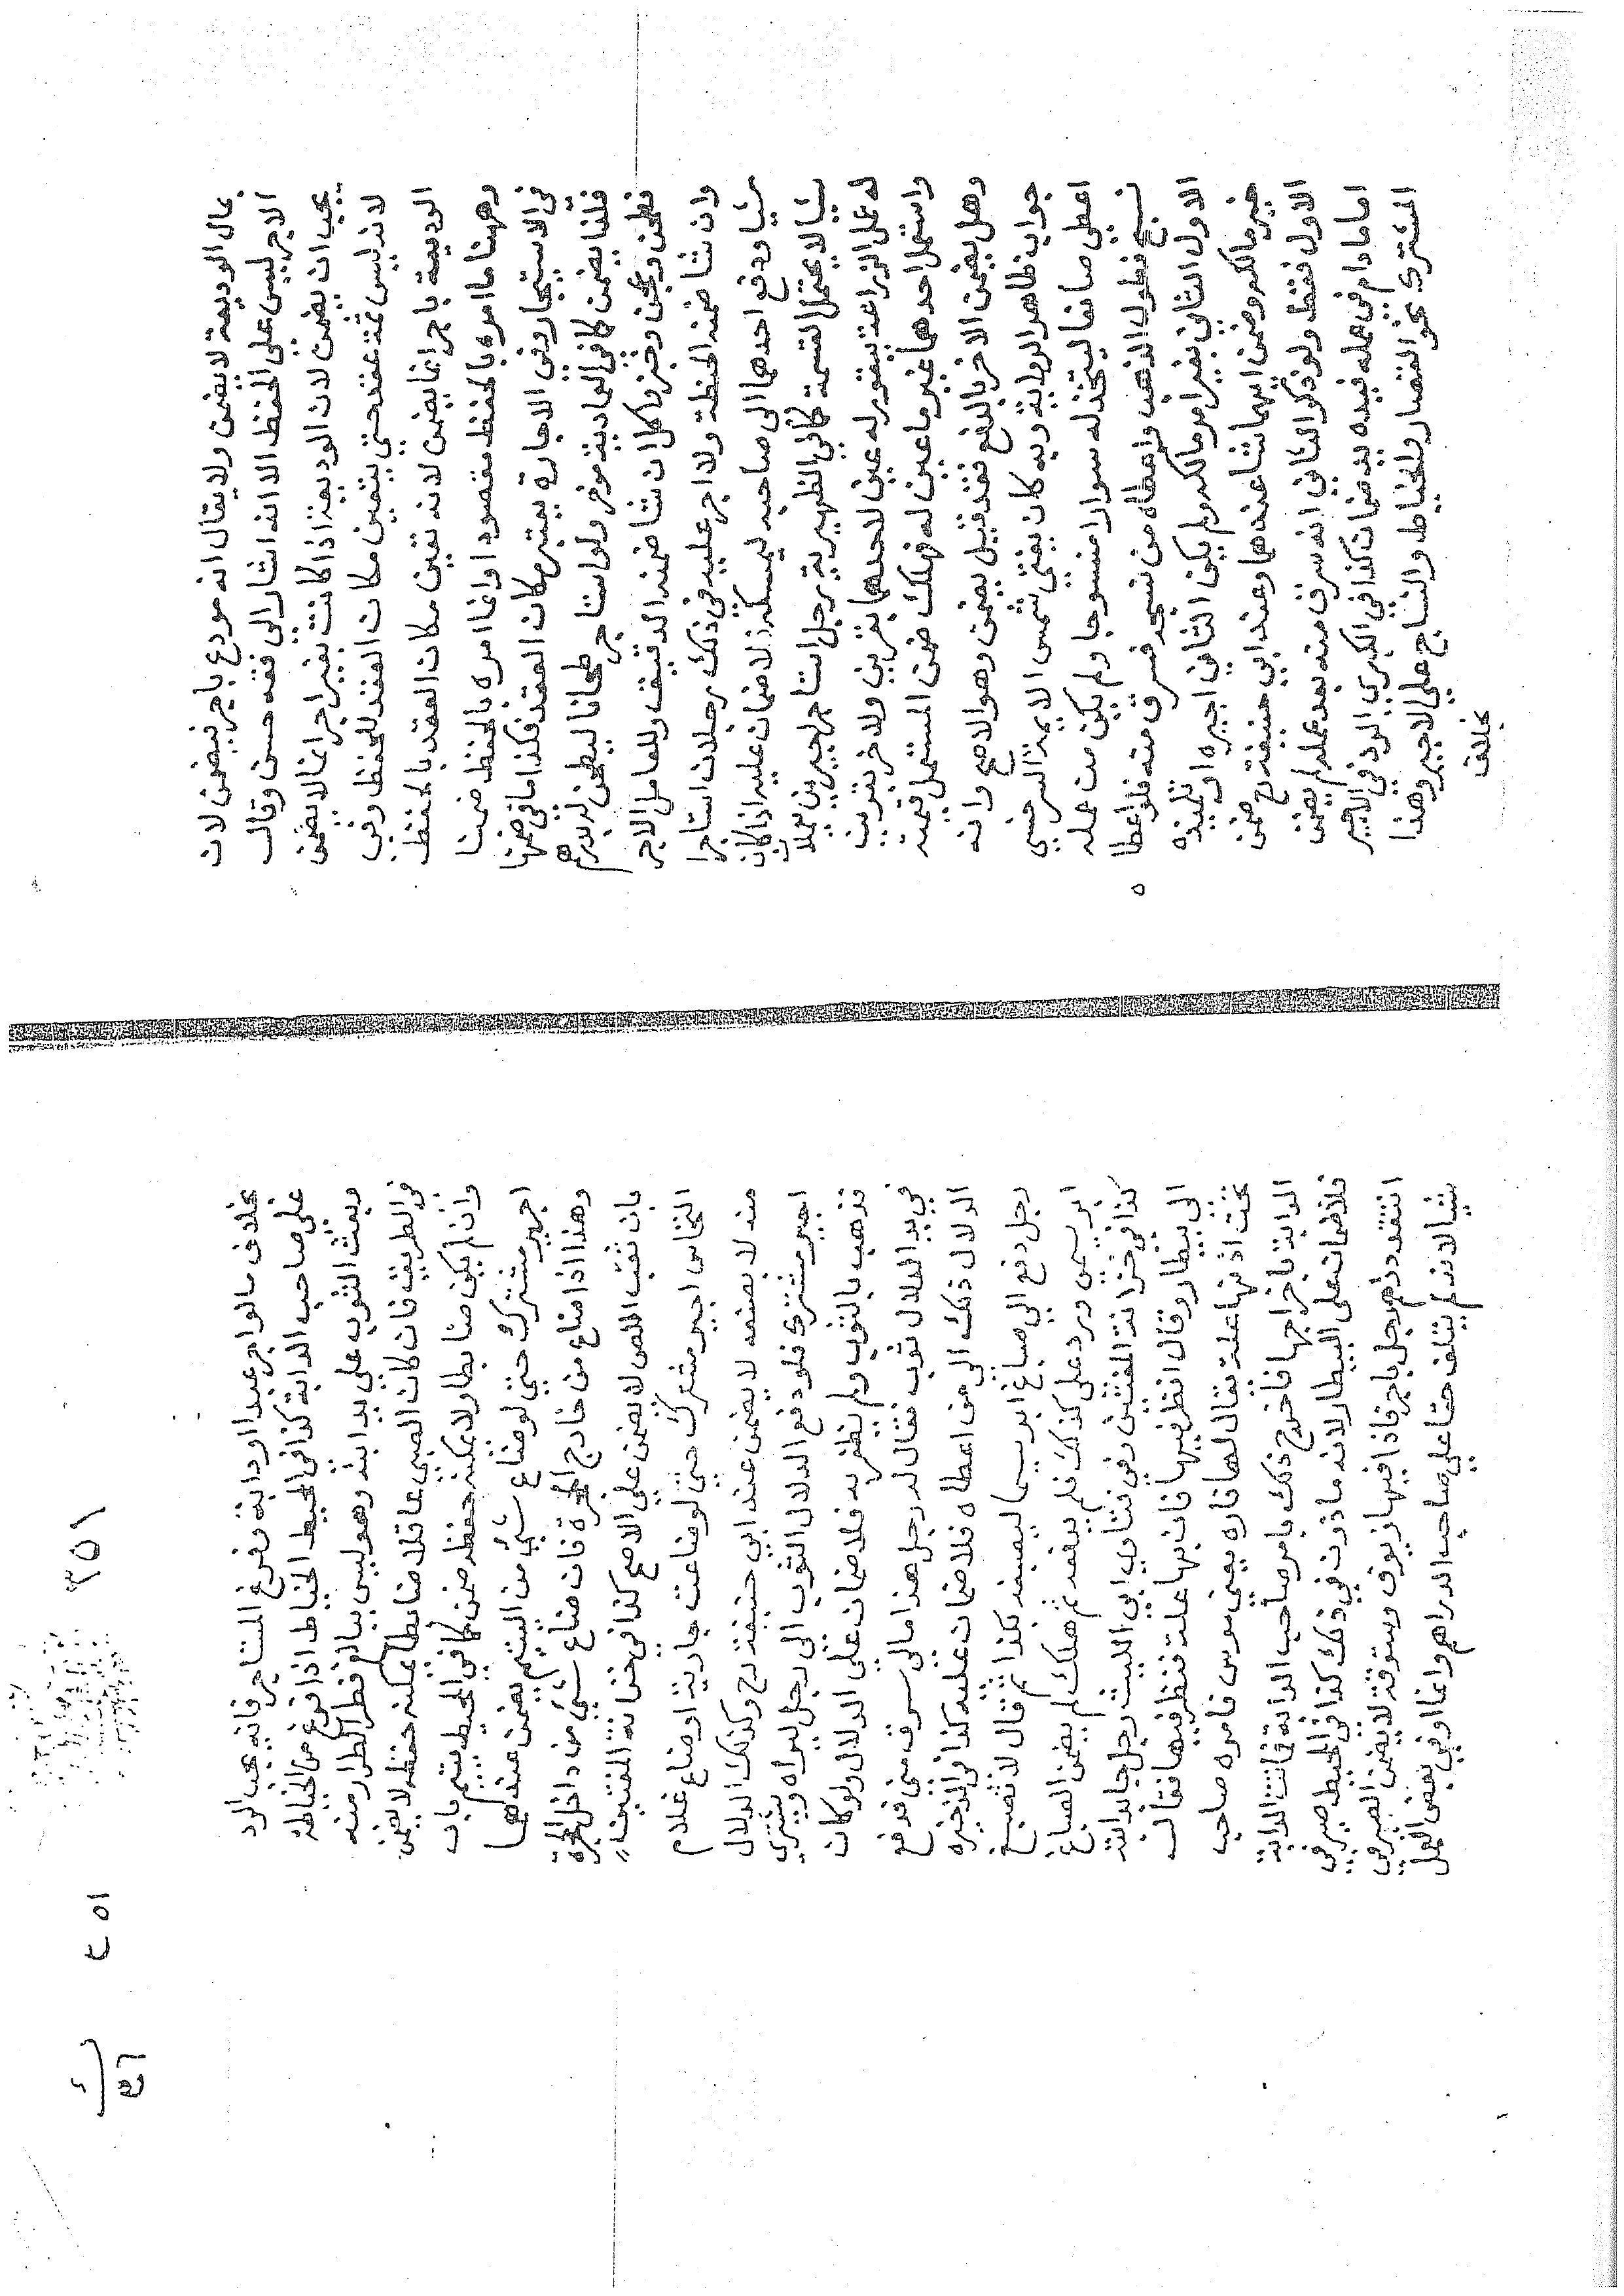 بمال الوديعة لا يضمن ولا يقال انه مودع باجر فيضمن لان
الاجر ليس على الحفظ الا انه اشار الى فقه حسن وقال
يجب ان يضمن لان الوديعة اذا كانت بغير اجر انما لا يضمن
لانه ليس ثمة عقد حتى يتعين مكان العقد للحفظ وفى
الوديعة باجر انما يضمن لانه تعين مكان العقد بالحفظ
وههنا ما امره بالحفظ مقصودا وانما امره بالحفظ ضمنا
فى الاستيجار وفى الاجارة يعتبر مكان العقد فكذا ما فى ضمنها
قلنا يضمن كما فى العمادية ولو استاجر طحانا ليطحن له بدرهم
فطحن وعجن وخبز واكل ان شا ضمنه الدقيق وللعامل الاجر
وان شا ضمنه الحنطة ولا اجر عليه فى ذلك رجلان استاجرا
شيا ودفع احدهما الى صاحبه ليمسكه لا ضمان عليه اذا كان
شيا لا يحتمل القسمة كما فى الظهيرية رجل استاجر اجيرين يعملان
له عمل الزراعة ببقور له عين لاحدهما بقرين وللاخر بقرين
واستعمل احدهما غير ما عين له فهلك ضمن المستعمل قيمته
وهل يضمن الاخر بالدفع فقد قيل يضمن وهو الاصح وانه
جواب ظاهر الرواية وبه كان يفتى شمس الايمة السرخسى
اعطى صانعا ليتخذ له سوارا منسوجا ولم يكن من عمله
نسج فطول الذهب واعطاه من نسجه فسرق منه فلو اعطا
الاول الثانى بغير امر مالكه ولم يكن الثانى اجيره او تلميذه
خير مالكه وضمن ايهما شا عندهما وعند ابى حنيفة رح ضمن
الاول فقط ولو ذكر الثانى انه سرق منه بعد عمله لم يضمن
اما ما دام فى عمله فيده يد ضمان كذا فى الكبرى الرد فى الاجير
المشترك نحو القصار والخياط والنساج على الاجير وهذا
بخلاف

٣٥١
٤٥١
بخلاف ما لو اجر عبدا او دابة وفرغ المستاجر فانه يجب الرد
على صاحب الدابة كذا فى المحيط الخياط اذا فرغ من الخياطة
وبعث الثوب على يد ابنه وهو ليس ببالغ فطر الطرار منه
فى الطريق فان كان الصبى عاقلا ضابطا يمكنه حفظه لا يضمن
وان لم يكن ضابطا ولا يمكنه حفظه ضمن كما فى المحيط يتيم بان
اجير مشترك حتى لو ضاع شئ من اليتيم يضمن عندهما
وهذا اذا ضاع من خارج الحجرة فان ضاع شئ من داخل الحجرة
بان نقب اللص لا يضمن على الاصح كذا فى خزانة المفتين
النخاس اجير مشترك حتى لو ضاعت جارية او ضاع غلام
منه لا بصنعه لا يضمن عند ابى حنيفة رح وكذلك الدلال
اجير مشترك فلو دفع الدلال الثوب الى رجل ليراه ويشترى
فذهب بالثوب ولم يظفر به فلا ضمان على الدلال ولو كان
فى يد الدلال ثوب فقال له رجل هذا مالى سرق منى فدفع
الدلال ذلك الى من اعطاه فلا ضمان عليه كذا فى الذخيرة
رجل دفع الى صباغ ابريسما ليصبغه بكذا ثم قال لا تصبغ
ابريسمى ورد على كذلك فلم يدفعه ثم هلك لم يضمن الصباغ
كذا فى خزانة المفتين وفى فتاوى ابى الليث رجل جا بدابته
الى بيطار وقال انظر فيها فان بها علة فنظر فيها فقال
تحت اذنها علة يقال لها فاره يعنى موس فامره صاحب
الدابة باخراجها فاخرج ذلك بامر صاحب الدابة فماتت الدابة
فلا ضمان على البيطار لانه ماذون فى ذلك كذا فى المحيط صيرفى
انتقد دراهم رجل باجر فاذا فيها زيوف وستوقة لا يضمن الصيرفى
شيا لانه لم يتلف حقا على صاحب الدراهم وانما اوفى بعض العمل